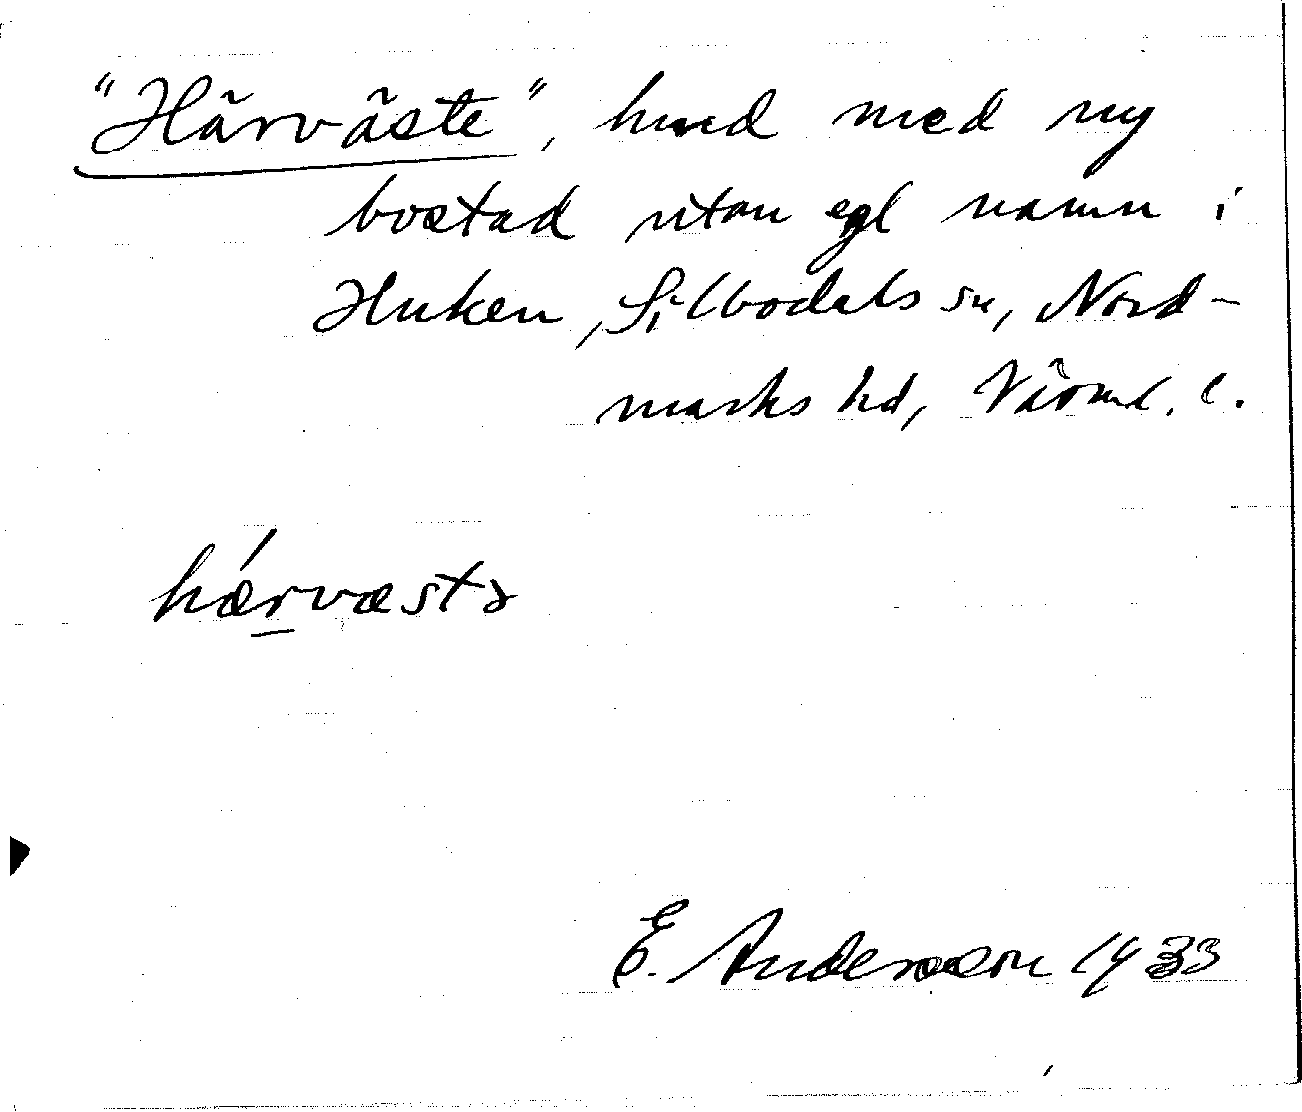 "Härväste", hund med ny
bostad utan egl namn i
Huken, Silbodals sn, Nord-
marks hd, Värml. l.
hǽrvæstə
E. Andersson 1933